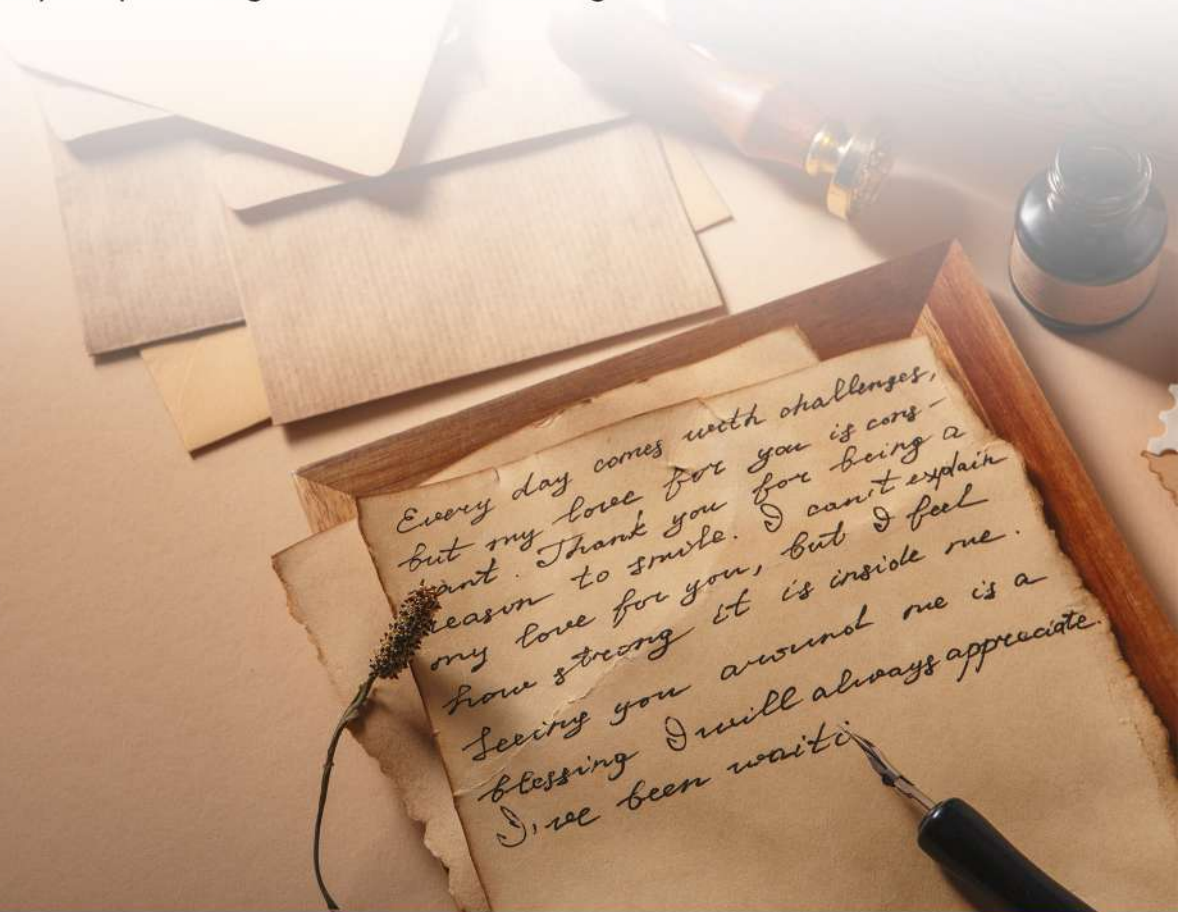 Every day comes with challenges,
but my love for you is cons-
tant. Thank you for being a
reason to smile. I can't explain
my love for you, but I feel
how strong it is inside me.
Seeing you around me is a
blessing I will always appreciate.
I've been waiti